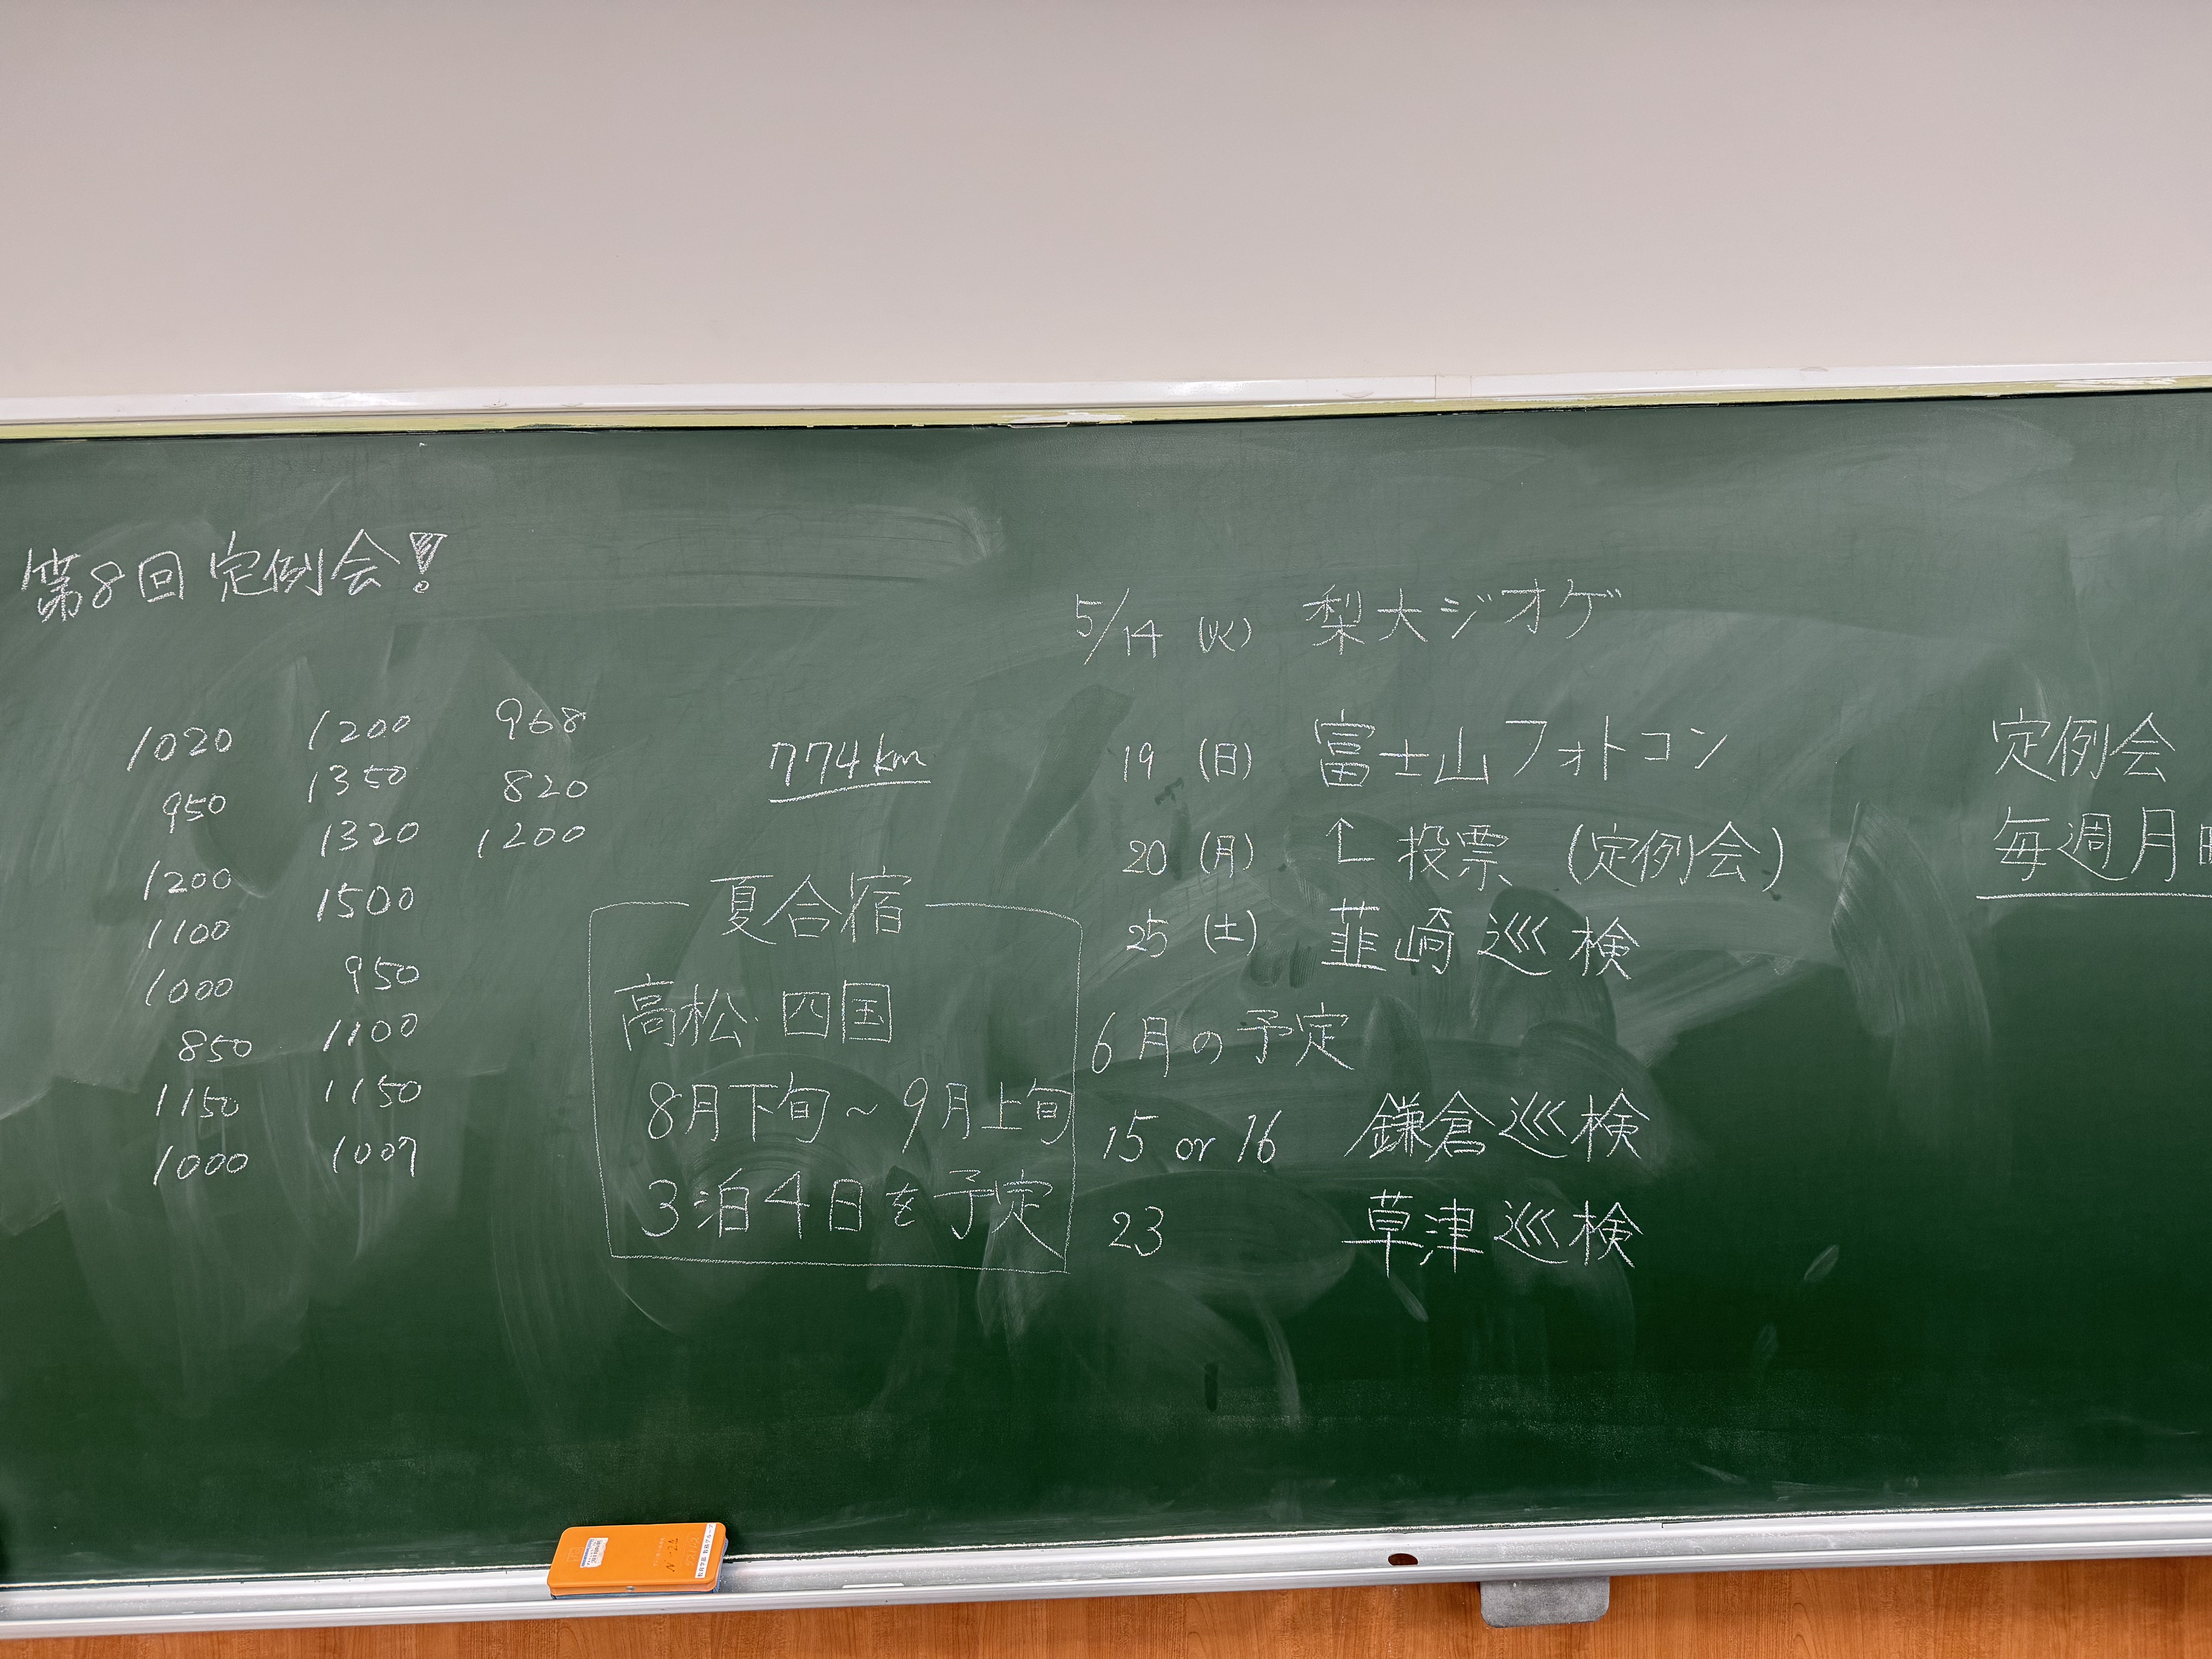 第8回定例会!
1020 1200 968
950 1350 820
1200 1320 1200
1100 1500
1000 950
850 1100
1150 1150
1000 1007
774km
夏合宿
高松 四国
8月下旬~9月上旬
3泊4日を予定
5/14 (火) 梨大ジオゲ
19 (日) 富士山フォトコン
20 (月) ↑投票 (定例会)
25 (土) 韮崎巡検
6月の予定
15 or 16 鎌倉巡検
23 草津巡検
定例会
毎週月